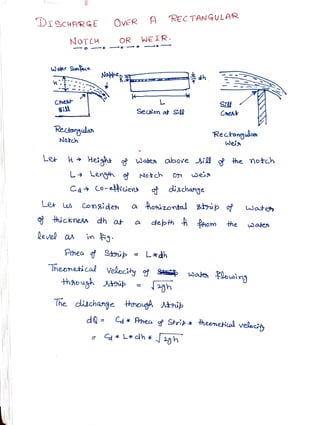 DISCHARGE OVER A RECTANGULAR
NOTCH OR WEIR.
Water Surface
Nappe
h
dh
H
Crest
Sill
L
Section at Sill
Sill
Crest
Rectangular
Notch
Rectangular
Weir
Let H → Height of Water above sill of the notch
L → Length of Notch or weir
Cd → Co-efficient of discharge
Let us Consider a horizontal strip of water
of thickness dh at a depth h from the water
level as in fig.
Area of Strip = L*dh
Theoretical Velocity of water flowing
through strip = √2gh
The discharge through strip
dQ = Cd * Area of Strip * theoretical velocity
= Cd * L*dh * √2gh